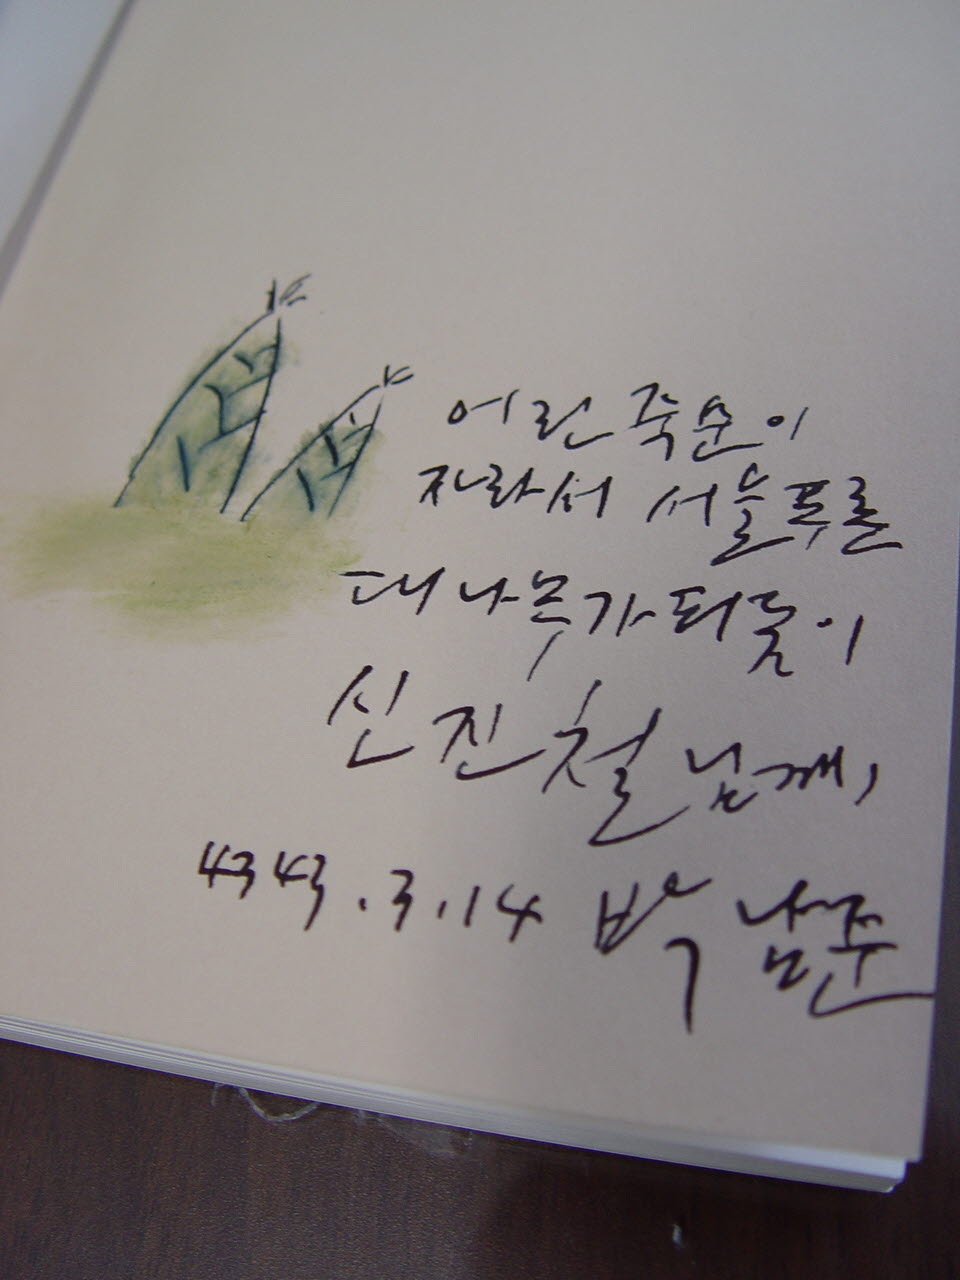 어린 죽순이
자라서 서늘푸른
대나무가 되듯이
신진철 님께,
4343.3.14 박남준